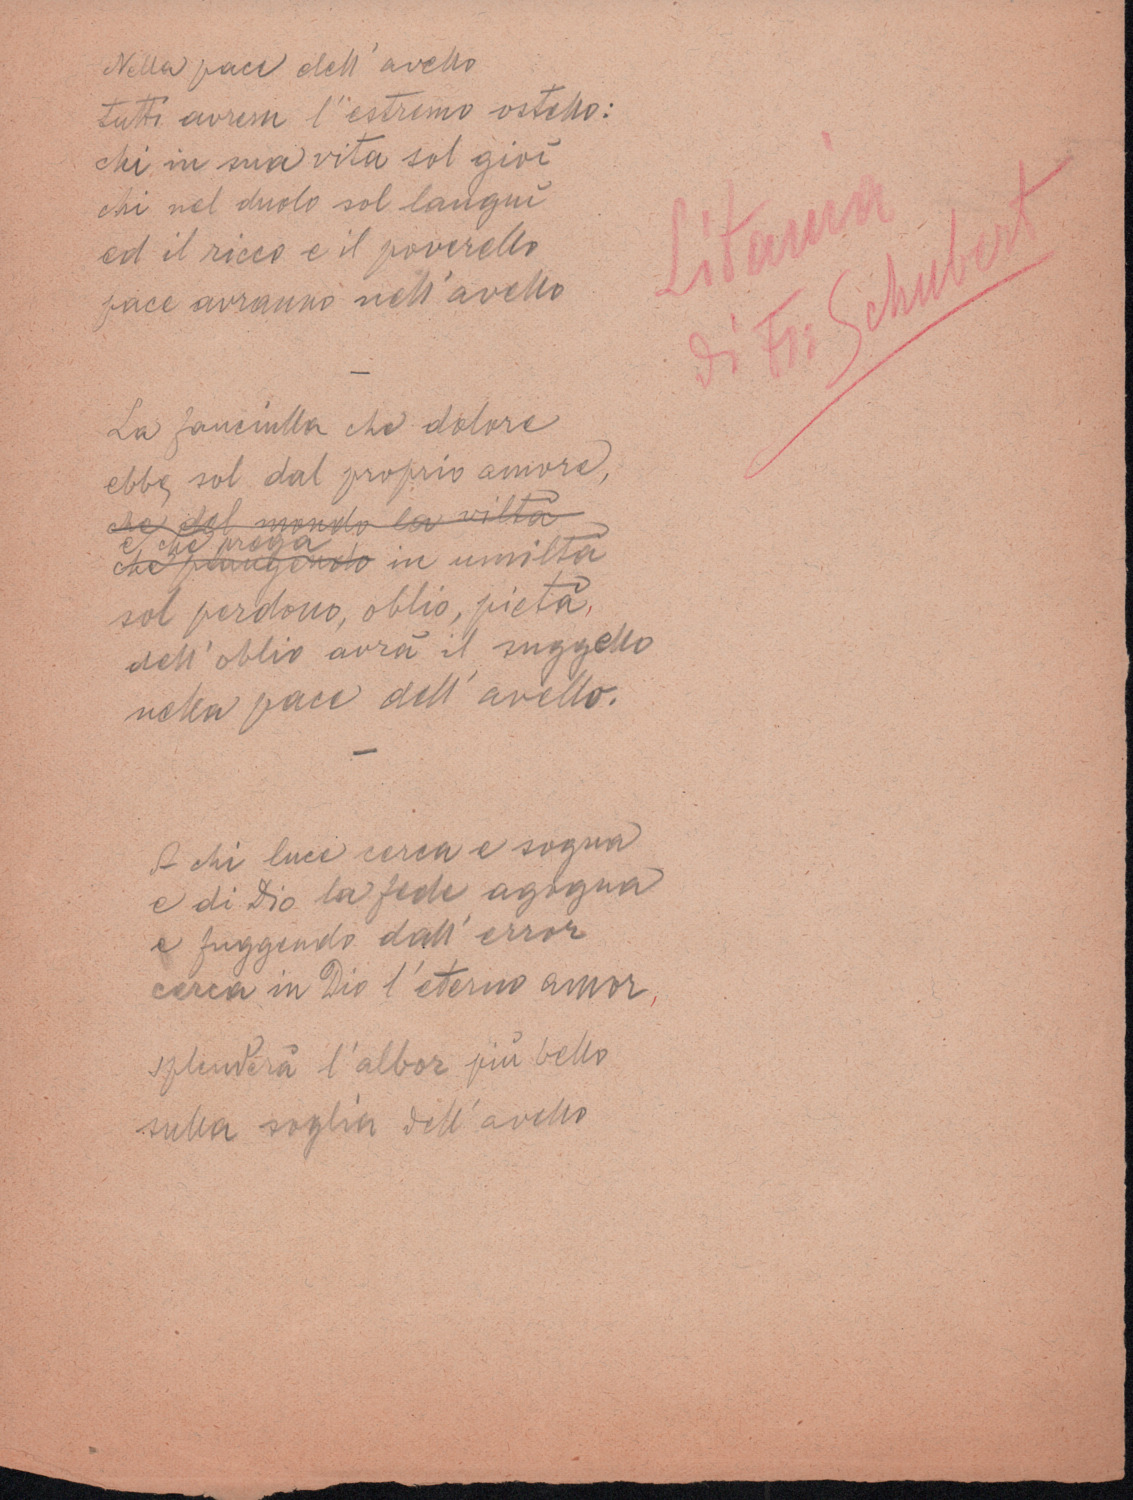 Nella pace dell'avello
tutti avrem l'estremo ostello:
chi in sua vita sol gioì
chi nel duolo sol languì
ed il ricco e il poverello
pace avranno nell'avello
–
La fanciulla che dolore
ebbe sol dal proprio amore,
che del mondo la viltà
e che prega
che piangendo in umiltà
sol perdono, oblio, pietà,
dell'oblio avrà il suggello
nella pace dell'avello.
–
A chi luce cerca e sogna
e di Dio la fede agogna
e fuggendo dall'error
cerca in Dio l'eterno amor,
splenderà l'albor più bello
sulla soglia dell'avello
Litania
di Fr: Schubert